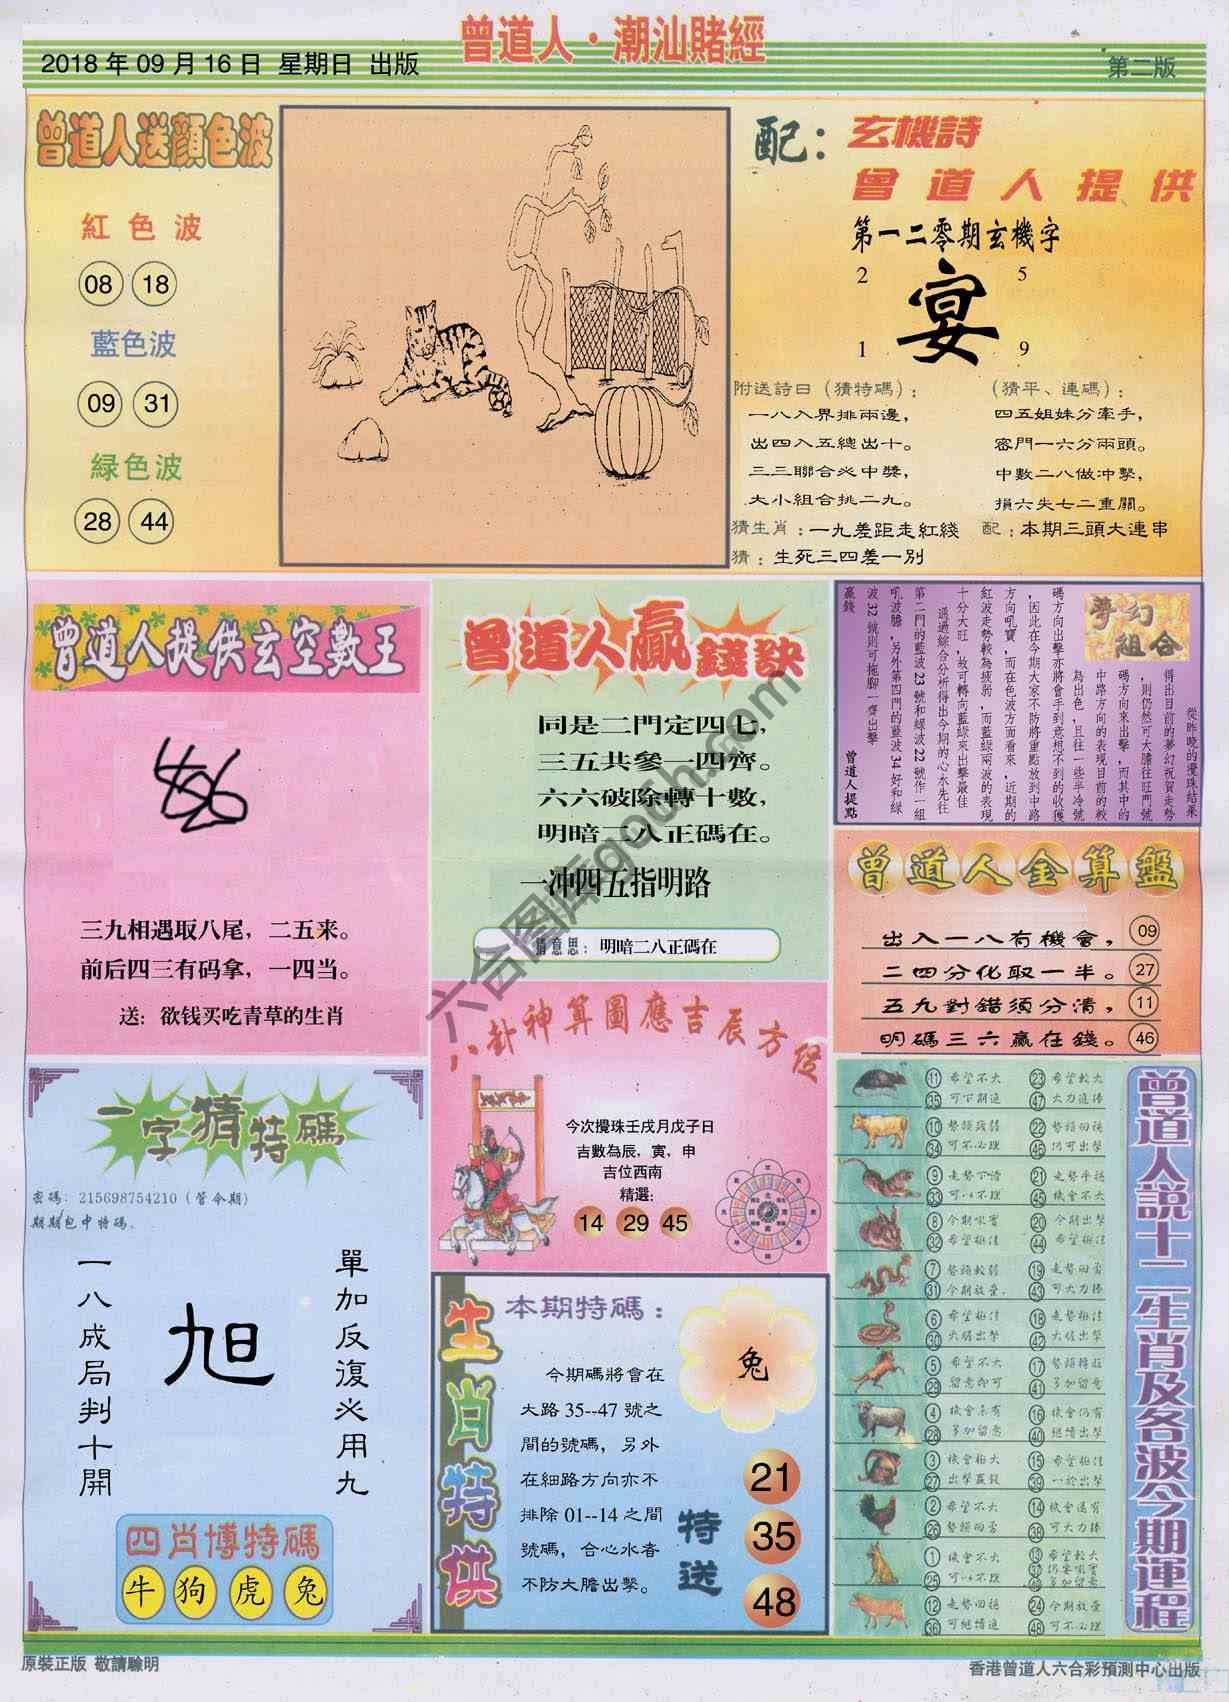 曾道人·潮汕賭經
2018年09月16日 星期日 出版
第二版
曾道人送顏色波
紅色波
08 18
藍色波
09 31
緑色波
28 44
配：玄機詩
曾道人提供
第一二零期玄機字
2 5
宴
1 9
附送詩曰（猜特碼）：
一八入界排兩邊，
出四入五總出十。
三三聯合必中獎，
大小組合挑二九。
（猜平、連碼）：
四五姐妹分牽手，
容門一六分兩頭。
中數二八做冲擊，
損六失七二重關。
猜生肖：一九差距走紅綫
配：本期三頭大連串
猜：生死三四差一别
曾道人提供玄空數王
三九相遇取八尾，二五来。
前后四三有码拿，一四当。
送：欲钱买吃青草的生肖
曾道人贏錢訣
同是二門定四七，
三五共參一四齊。
六六破除轉十數，
明暗二八正碼在。
一冲四五指明路
猜意思：明暗二八正碼在
夢幻組合
從昨晚的攪珠結果
得出目前的夢幻祝賀走勢
，則仍然可大膽往旺門號
碼方向來出擊，而其中的
中路方向的表現目前的較
為出色，且往一些半冷號
碼方向出擊亦將會手到意想不到的收獲
，因此在今期大家不防將重點放到中路
方向吼寶，而在色波方面看來，近期的
紅波走勢較為疲弱，而藍綠兩波的表現
十分大旺，故可轉向藍綠來出擊最佳
通過綜合分析得出今期的心水先往
第二門的藍波23號和緑波22號作一組
吼波膽，另外第四門的藍波34好和緑
波32號則可拖腳一齊出擊
贏錢
曾道人提點
曾道人金算盤
出入一八有機會， 09
二四分化取一半。 27
五九對錯須分清， 11
明碼三六贏在錢。 46
八卦神算圖應吉辰方位
今次攪珠壬戌月戊子日
吉數為辰，寅，申
吉位西南
精選：
14 29 45
一字猜特碼
密碼：215698754210（管令期）
期期包中特碼．
單加反復必用九
旭
一八成局判十開
四肖博特碼
牛 狗 虎 兔
生肖特供
本期特碼：
兔
今期碼將會在
大路35--47號之
間的號碼，另外
在細路方向亦不
排除01--14之間
號碼，合心水者
不防大膽出擊。
特送
21
35
48
曾道人説十二生肖及各波今期運程
11 希望不大 23 希望較大
35 可下期追 47 大力追捧
10 勢頭疲弱 22 勢頭回穩
34 可不必理 46 仍可出擊
9 走勢下滑 21 走勢平穩
33 可以不理 45 機會不大
8 今期吼寶 20 今期出擊
32 希望極佳 44 希望極佳
7 勢頭較弱 19 走勢回勇
31 今期放棄 43 可大力捧
6 希望極佳 18 走勢極佳
30 大膽出擊 42 大膽出擊
5 希望不大 17 勢頭轉旺
29 留意即可 41 多加留意
4 機會未有 16 機會仍有
28 多加留意 40 繼續出擊
3 機會極大 15 希望極佳
27 出擊贏錢 39 一於出擊
2 希望不大 14 機會還有
26 勢頭回勇 38 可大力捧
1 機會不大 13 希望較大
25 可以不理
12 走勢回穩 24 今期放棄
36 可繼續追 48 可不必理
原裝正版 敬請驗明
香港曾道人六合彩預測中心出版
六合图库go6h.com